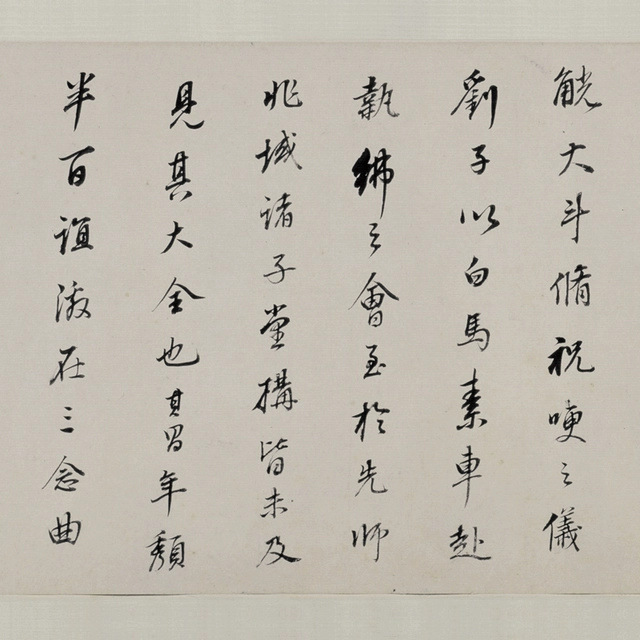 觥大斗脩祝哽之儀
劉子以白馬素車赴
執紼之會至於先師
兆域諸子堂構皆未及
見其大全也其昌年頹
半百誼激在三念曲